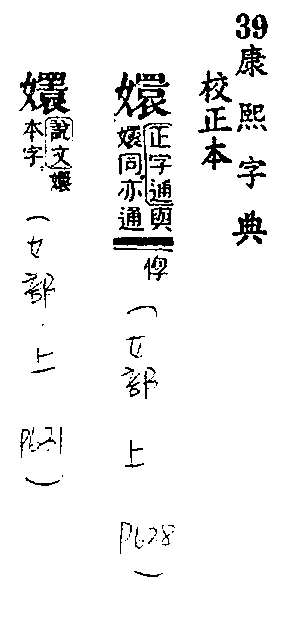 39康熙字典
校正本
正字通與
嬛同亦通
(女部 上 P628)
說文嬛
本字
(女部.上 P631)